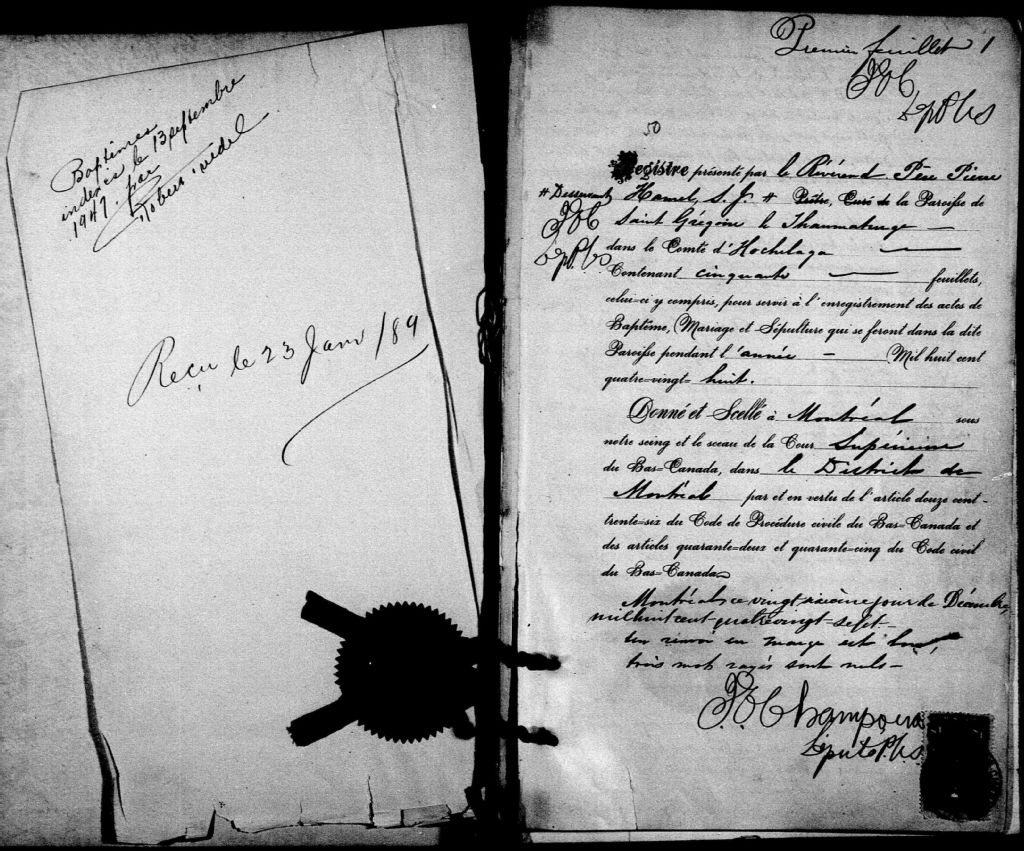 Baptêmes
indexés le 13 septembre
1947. par
Reçu le 23 Janv /89
Premier feuillet 1
JEC
Dep P.C.S.
50
Registre présenté par le Révérend Père Pierre
# Desservant Hamel, S. J. # Prêtre, Curé de la Paroisse de
JEC
Dep P.C.S.
Saint Grégoire le Thaumaturge —
dans le Comté d'Hochelaga —
Contenant cinquante — feuillets,
celui-ci y compris, pour servir à l'enregistrement des actes de
Baptême, Mariage et Sépulture qui se feront dans la dite
Paroisse pendant l'année — Mil huit cent
quatre-vingt-huit.
Donné et Scellé à Montréal sous
notre seing et le sceau de la Cour Supérieure
du Bas-Canada, dans le District de
Montréal par et en vertu de l'article douze cent-
trente-six du Code de Procédure civile du Bas-Canada et
des articles quarante-deux et quarante-cinq du Code civil
du Bas-Canada
Montréal, ce vingt sixième jour de Décembre,
mil huit cent-quatre vingt-sept-
Un renvoi en marge est bon,
trois mots rayés sont nuls—
Champoux
Député P.C.S.